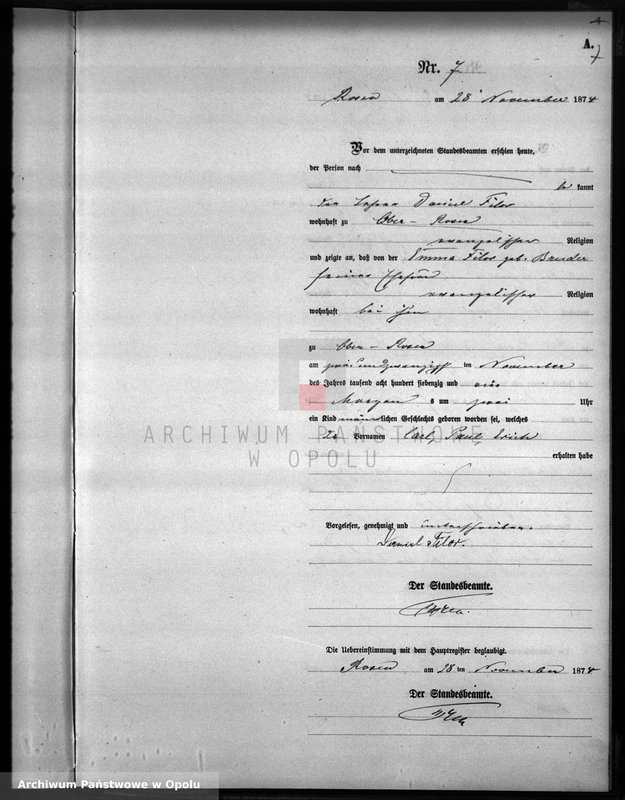 A.
7
Nr. 7.
Rosen am 28ᵗ November 1874
Vor dem unterzeichneten Standesbeamten erschien heute,
der Person nach
be kannt
der Daniel Filor
wohnhaft zu Ober-Rosen
evangelischer Religion
und zeigte an, daß von der Emma Filor geb. Bruder
seiner Ehefrau
evangelischer Religion
wohnhaft bei ihm
zu Ober-Rosen
am zweiundzwanzigsten November
des Jahres tausend acht hundert siebenzig und vier
Morgens um zwei Uhr
ein Kind männlichen Geschlechts geboren worden sei, welches
Vornamen Carl, Paul,
erhalten habe
Vorgelesen, genehmigt und unterschrieben.
Daniel Filor.
Der Standesbeamte.
Die Uebereinstimmung mit dem Hauptregister beglaubigt.
Rosen am 28 ten November 1874
Der Standesbeamte.
ARCHIWUM PAŃSTWOWE
W OPOLU
Archiwum Państwowe w Opolu